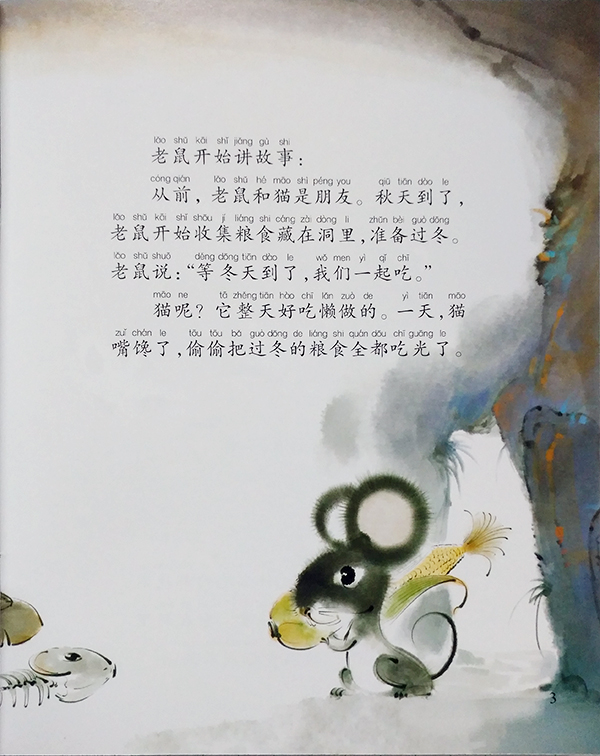 lǎo shǔ kāi shǐ jiǎng gù shi
老鼠开始讲故事：
cóng qián lǎo shǔ hé māo shì péng you qiū tiān dào le
从前，老鼠和猫是朋友。秋天到了，
lǎo shǔ kāi shǐ shōu jí liáng shi cáng zài dòng li zhǔn bèi guò dōng
老鼠开始收集粮食藏在洞里，准备过冬。
lǎo shǔ shuō děng dōng tiān dào le wǒ men yì qǐ chī
老鼠说：“等冬天到了，我们一起吃。”
māo ne tā zhěng tiān hào chī lǎn zuò de yì tiān māo
猫呢？它整天好吃懒做的。一天，猫
zuǐ chán le tōu tōu bǎ guò dōng de liáng shi quán dōu chī guāng le
嘴馋了，偷偷把过冬的粮食全都吃光了。
3